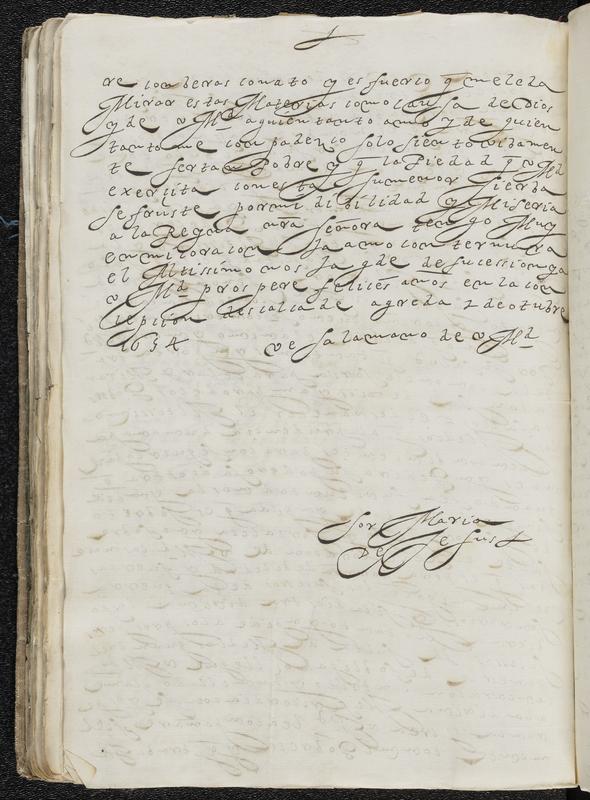 re con beras conato y es fuerço q me le da
Mirar estas Materias como causa de Dios
y de v Md a quien tanto amo y de quien
tanto me conpadezco solo siento vibamen
te ser tan Pobre y q la Piedad q v Md
exerçita con esta su menor sierba
se fruste por mi dibilidad y Miseria
a la Reyna nra señora tengo Muy
en mi oracion la amo con ternura
el Altissimo nos la gde de sucession y a
v Md prospere felices años en la con
cepçion descalça de agreda 2 de otubre
1654 ve sa la mano de v Md
Sor Maria
De Jesus